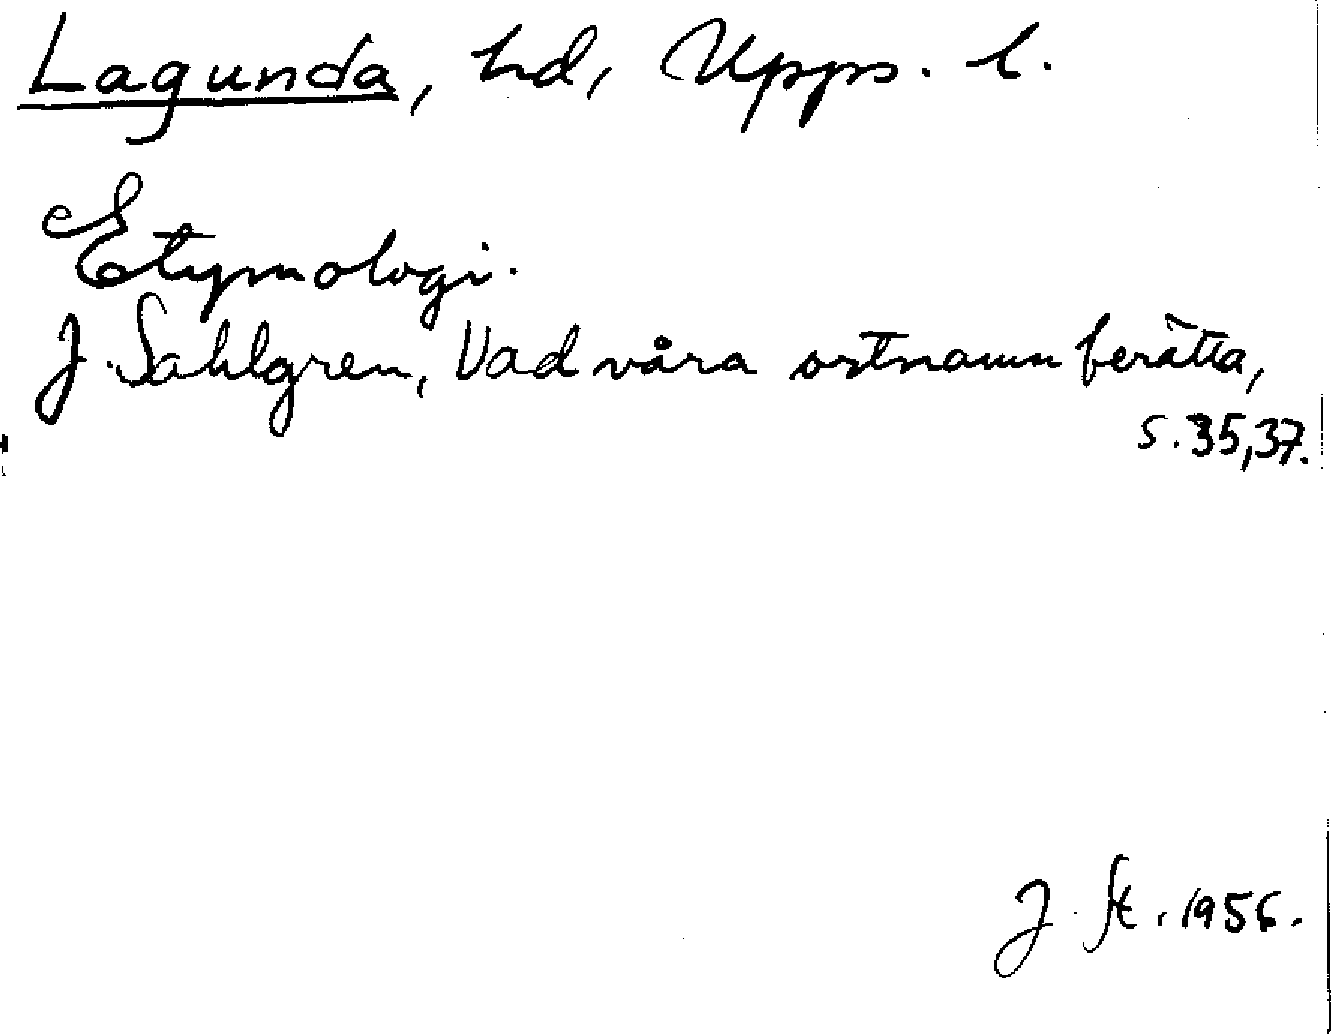 Lagunda, hd, Upps. l.
Etymologi.
J. Sahlgren, Vad våra ortnamn berätta,
s. 35,37.
J. St. 1956.